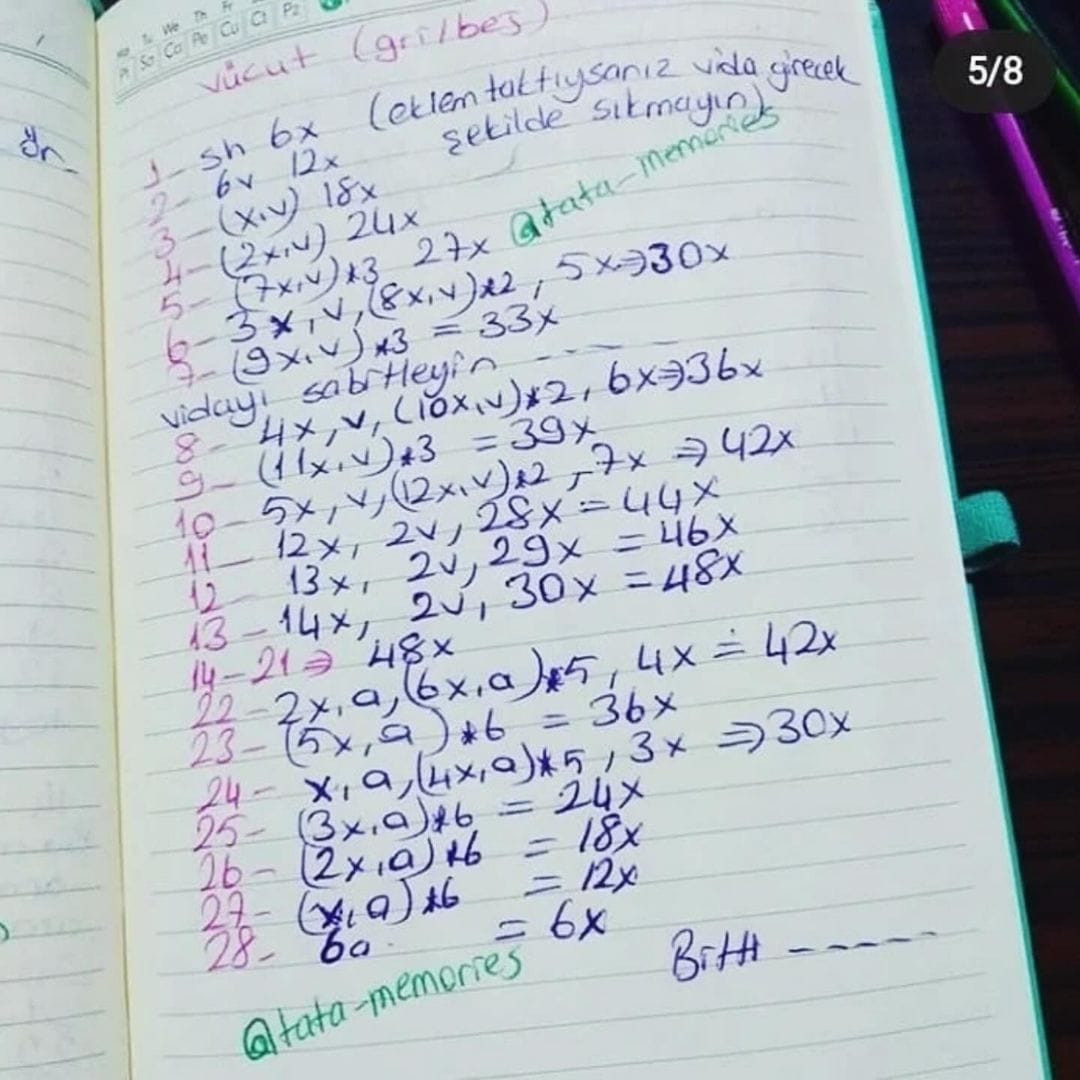 5/8
Mo Tu We Th Fr
Pt Sa Ça Pe Cu Ct Pz
vücut (gri/bej)
1- sh 6x (eklem taktıysanız vida girecek
şekilde sıkmayın)
2- 6v 12x
3- (x,v) 18x
4- (2x,v) 24x
@tata-memories
5- (7x,v)*3 27x
6- 3x,v,(8x,v)*2, 5x⇒30x
7- (9x,v)*3 = 33x
vidayı sabitleyin -----
8- 4x,v,(10x,v)*2, 6x⇒36x
9- (11x,v)*3 = 39x
10- 5x,v,(12x,v)*2, 7x ⇒ 42x
11- 12x, 2v, 28x = 44x
12- 13x, 2v, 29x = 46x
13- 14x, 2v, 30x = 48x
14-21⇒ 48x
22- 2x,a,(6x,a)*5, 4x = 42x
23- (5x,a)*6 = 36x
24- x,a,(4x,a)*5, 3x ⇒30x
25- (3x,a)*6 = 24x
26- (2x,a)*6 = 18x
27- (x,a)*6 = 12x
28- 6a = 6x
Bitti -----
@tata-memories